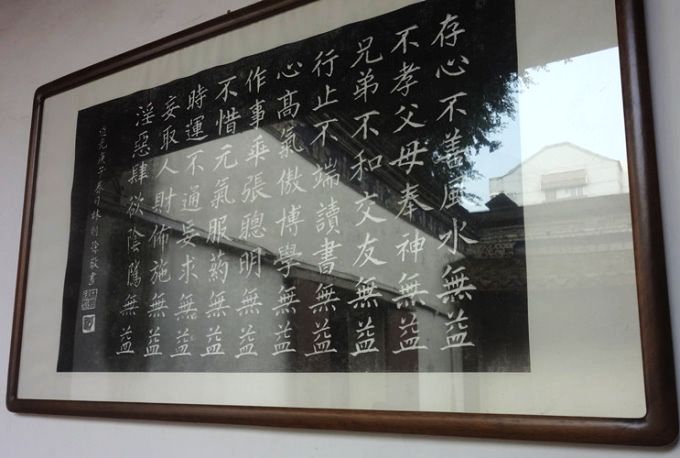 存心不善風水無益
不孝父母奉神無益
兄弟不和交友無益
行止不端讀書無益
心高氣傲博學無益
作事乖張聰明無益
不惜元氣服葯無益
時運不通妄求無益
妄取人財佈施無益
淫惡肆欲陰騭無益
道光庚子春月林則徐敬書